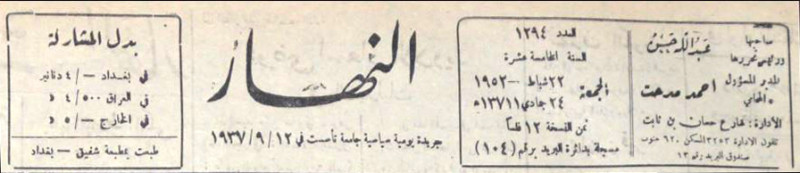 صاحبها
ورئيس تحريرها
عبدالله حسين
المدير المسؤول
المحامي
احمد مدحت
الأدارة: شارع حسان بن ثابت
تلفون الادارة ٣٢٥٣ المسكن ٦٢٠ جنوب
صندوق البريد رقم ١٣
العدد ١٢٩٤
السنة الخامسة عشرة
الجمعة
٢٢ شباط — ١٩٥٢
٢٤ جمادي ١٣٧١١ه
ثمن النسخة ١٢ فلساً
مسجلة بدائرة البريد برقم (١٠٤)
النهار
جريدة يومية سياسية جامعة تأسست في ١٢/٩/١٩٣٧
بدل المشاركة
في بغداد —/٤ دنانير
في العراق ٥٠٠/٤ د
في الخارج —/٥ د
طبعت بمطبعة شفيق — بغداد